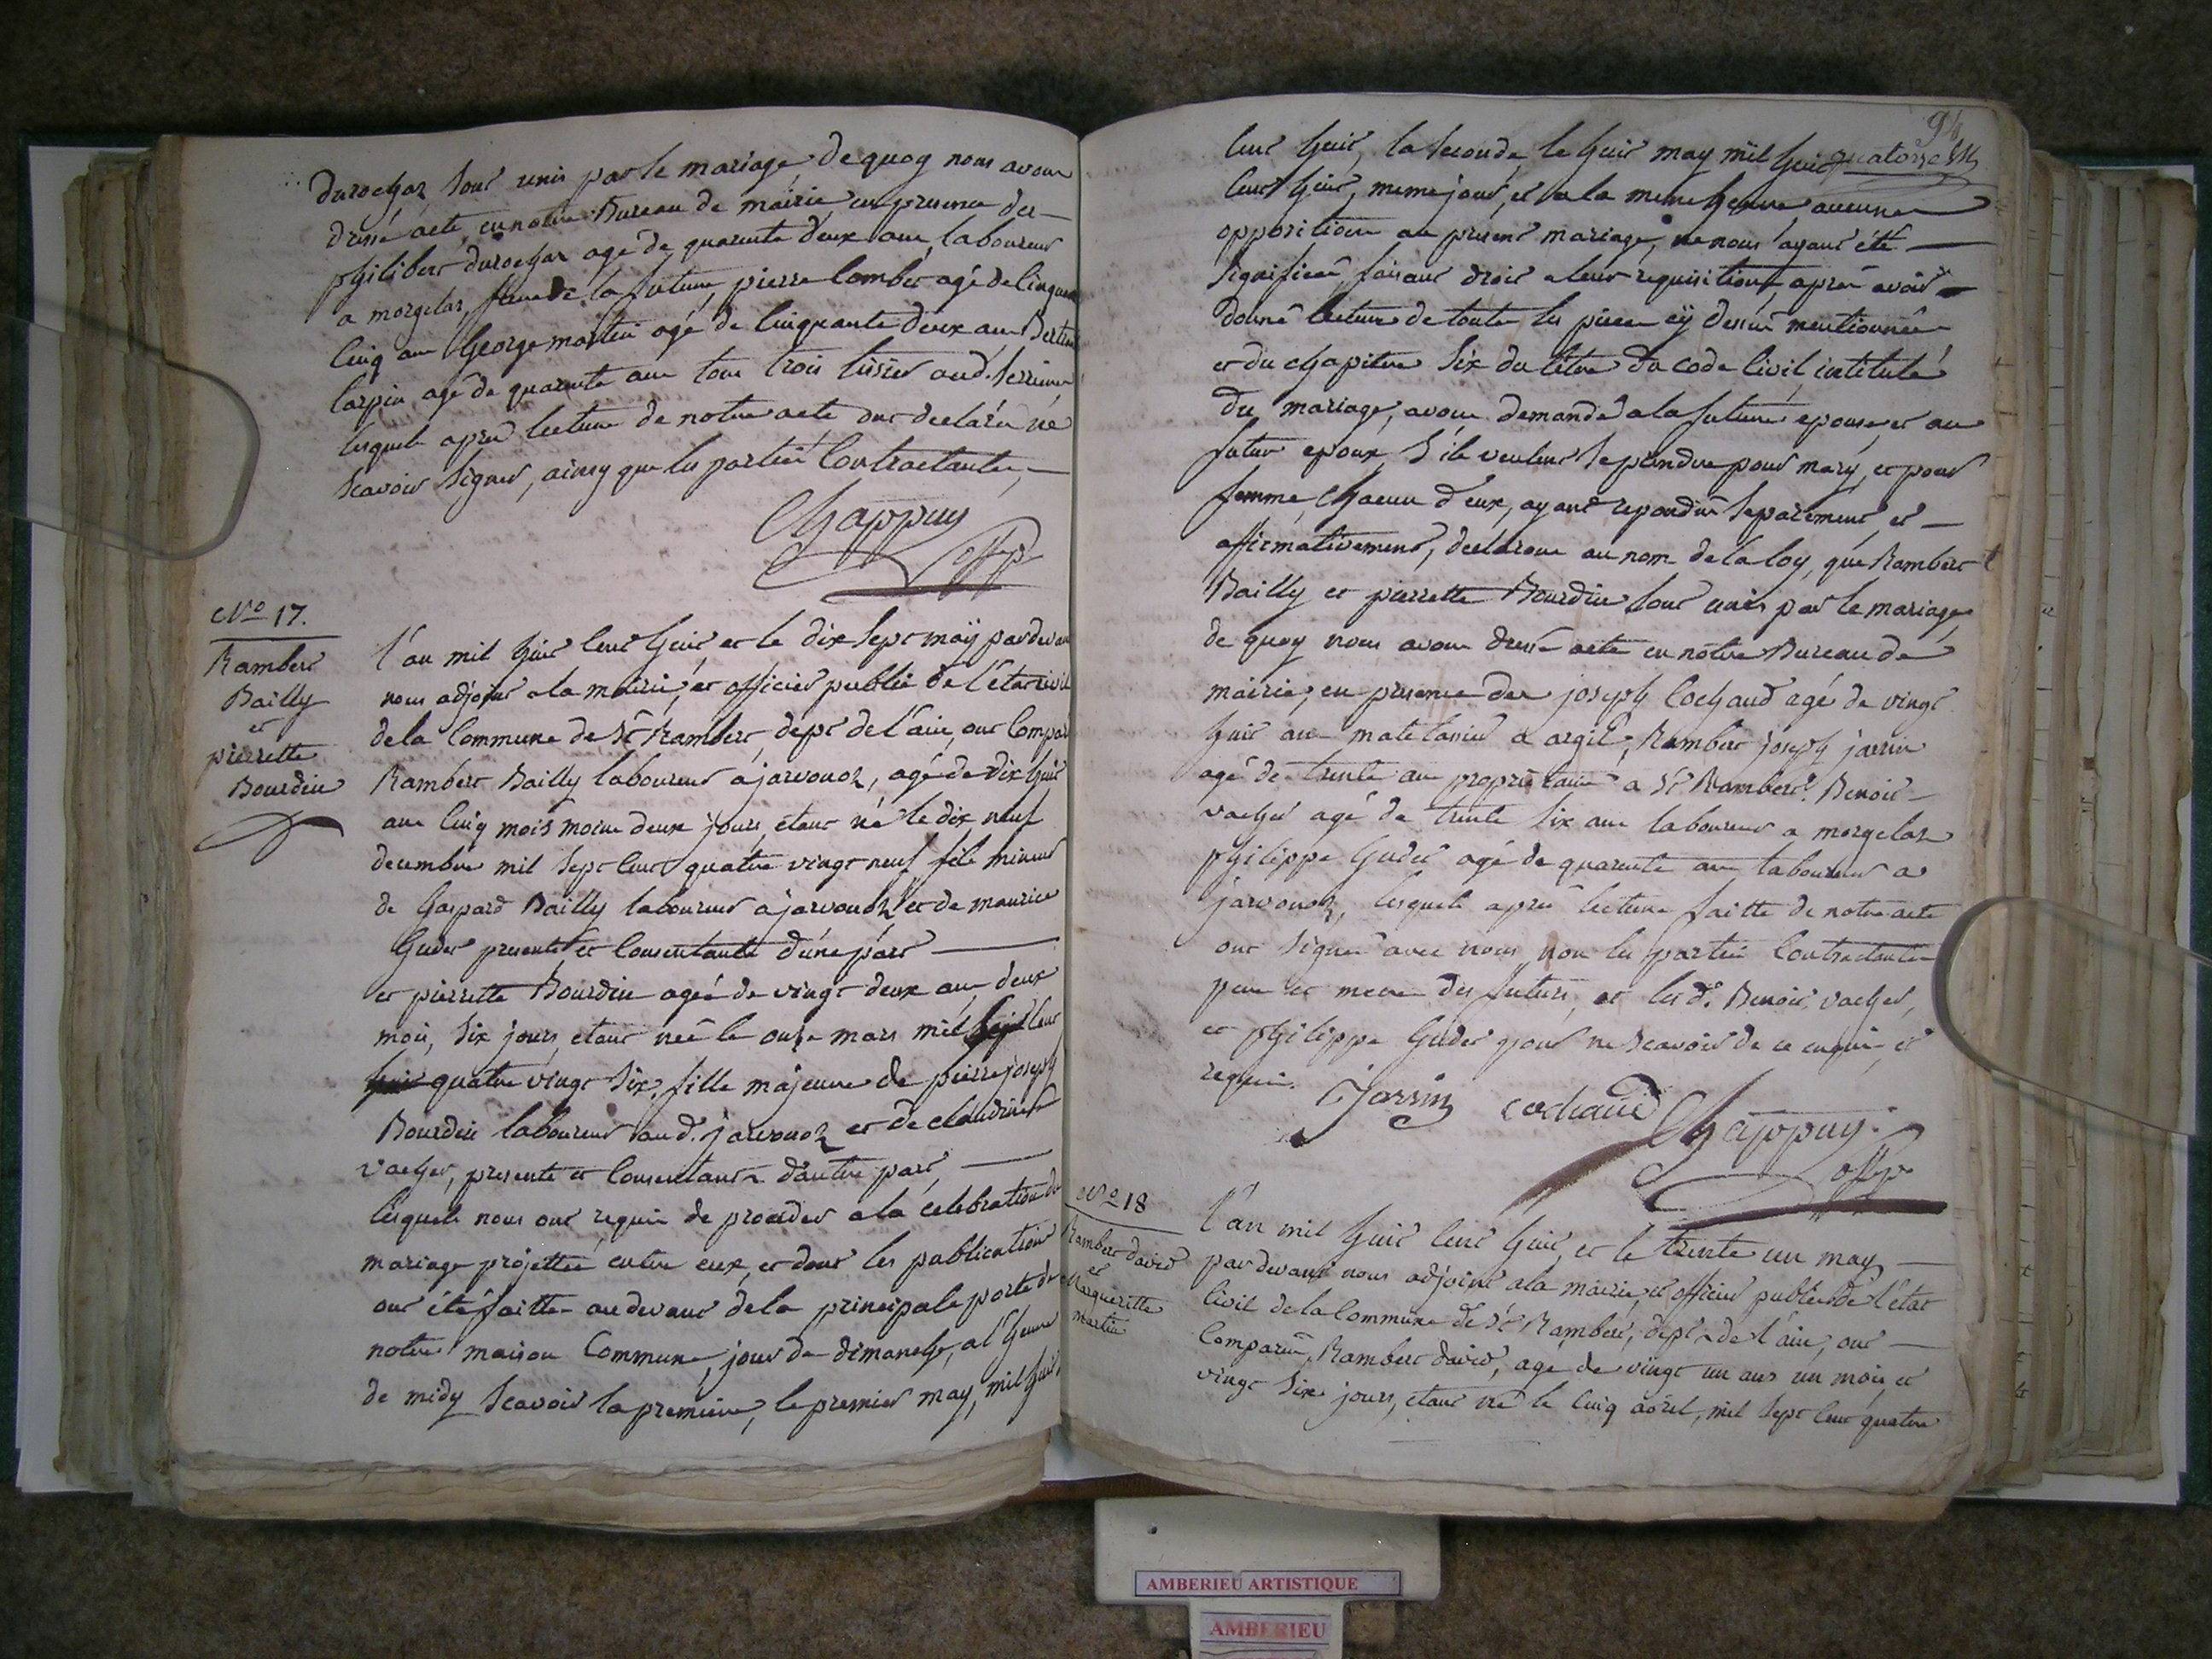 durochaz sont unis par le mariage, de quoy nous avons
dressé acte, en notre Bureau de mairie, en presence des
philibert durochaz agé de quarante deux ans, laboureur
a morgelas, frere de la future, pierre Combet agé de cinquante
cinq ans George martin agé de cinquante deux ans
Carpin agé de quarante ans tous trois tissiers aud. Serrieres
lesquels après lecture de notre acte ont declarés ne
scavoir signer, ainsy que les parties Contractantes,
Chappuy
offp
No 17.
Rambert
Bailly
et
pierrette
Bourdin
l'an mil huit cent huit et le dix sept maÿ pardevant
nous adjoint a la mairie, et officier public de l'état civil
de la Commune de St Rambert, dept de l'ain, ont Comparu
Rambert Bailly laboureur a javonoz, agé de dix huit
ans cinq mois moins deux jours, étant né le dix neuf
decembre mil sept cent quatre vingt neuf fils mineur
de Gaspard Bailly laboureur a javonoz et de maurice
Guder presents et Consentants d'une part
et pierrette Bourdin agée de vingt deux ans deux
mois, six jours, etant née le onze mars mil sept cent
quatre vingt six, fille majeure de pierre joseph
Bourdin laboureur aud. javonoz et de claudine
vacher, presents et Consentants d'autre part,
lesquels nous ont requis de proceder a la célébration du
mariage projetté entre eux, et dont les publications
ont été faittes au devant de la principale porte de
notre maison Commune, jour de dimanche, a l'heure
de midy scavoir la premiere, le premier may, mil huit
94
cent huit, la seconde, le huit may mil huit quatorze
cent huit, meme jour, et a la meme heure, aucunes
oppositions au present mariage, ne nous ayant été
signifiées, faisant droit a leur requisition, après avoir
donné lecture de toutes les pieces cÿ dessus mentionnées
et du chapitre six du titre du code Civil, intitulé
Du mariage, avons demandé a la future epouse, et au
futur epoux, s'ils veulent se prendre pour mary, et pour
femme, chacun d'eux, ayant repondu separément, et
affirmativement, declarons au nom de la loy, que Rambert
Bailly et pierrette Bourdin sont unis par le mariage,
de quoy nous avons dressé acte en nôtre Bureau de
mairie, en presence des joseph Cochaud agé de vingt
huit ans matelassier a argil, Rambert joseph jarrin
agé de trente ans propriétaire a St Rambert. Benoit
vacher agé de trente six ans laboureur a morgelas
philippe Guder agé de quarante ans laboureur a
javonoz, lesquels après lecture faitte de notre acte
ont signés avec nous, non les parties Contractantes
pere et mere des futurs, et les d. Benoit vacher,
et philippe Guder pour ne scavoir de ce enquis, et
requis.
Jarrin cochaud Chappuy.
offp
No 18
Rambert david
et
Margueritte
martin
l'an mil huit cent huit, et le trente un may
pardevant nous adjoint a la mairie, et officier public de l'état
Civil de la Commune de St Rambert, dept de l'ain, ont
Comparus, Rambert david, agé de vingt un ans un mois, et
vingt six jours, etant né le cinq avril, mil sept cent quatre
AMBERIEU ARTISTIQUE
AMBERIEU